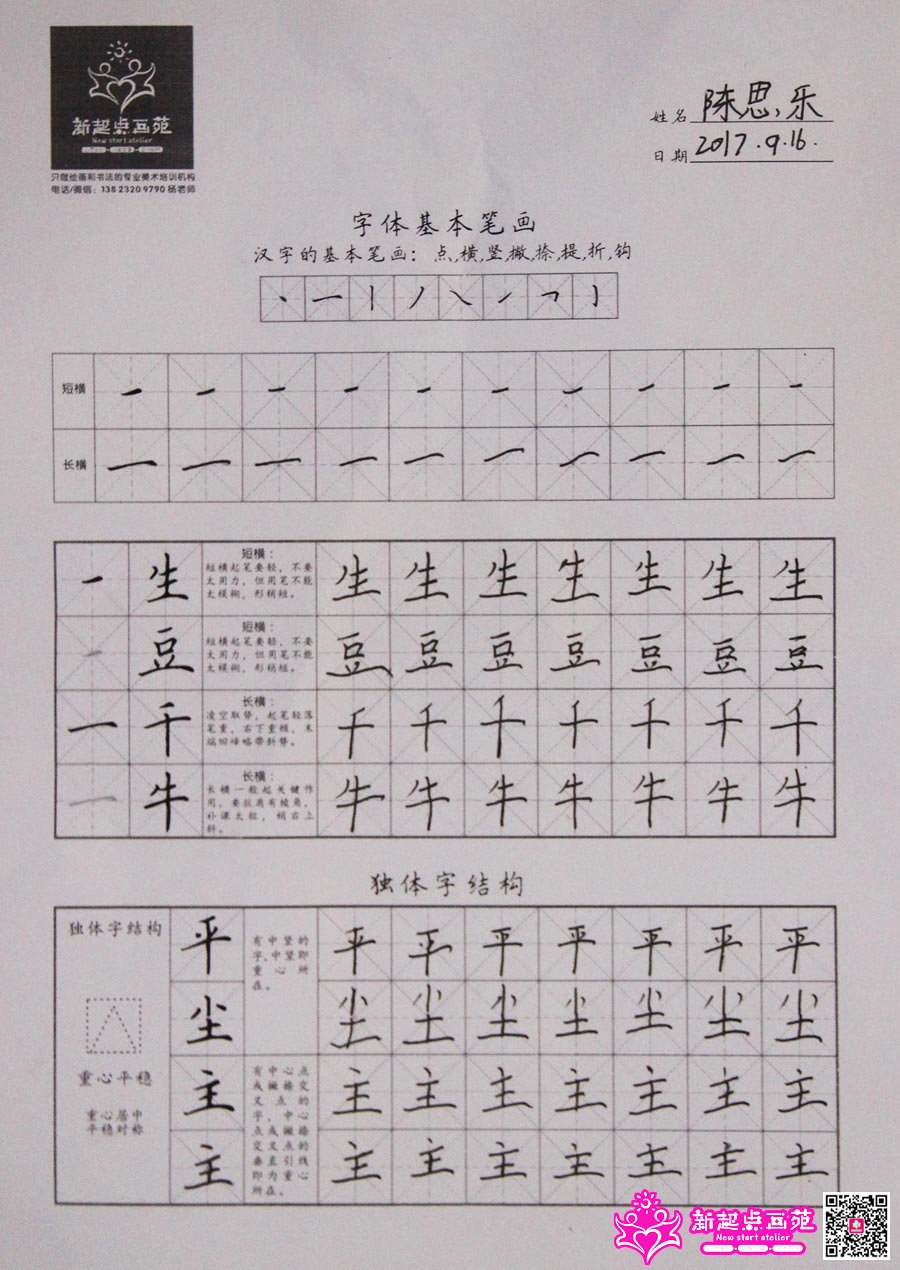 新起点画苑
New start atelier
只做绘画和书法的专业美术培训机构
电话/微信：138 2320 9790 杨老师
姓名 陈思乐
日期 2017.9.16.
字体基本笔画
汉字的基本笔画：点,横,竖,撇,捺,提,折,钩
短横 一 一 一 一 一 一 一 一 一 一
长横 一 一 一 一 一 一 一 一 一 一
一 生
短横：
短横起笔要轻，不要
太用力，但用笔不能
太模糊，形稍短。
生 生 生 生 生 生 生
一 豆
短横：
短横起笔要轻，不要
太用力，但用笔不能
太模糊，形稍短。
豆 豆 豆 豆 豆 豆 豆
一 千
长横：
凌空取势，起笔轻落
笔重，右下重顿，末
端回峰略带斜势。
千 千 千 千 千 千 千
一 牛
长横：
长横一般起关键作
用，要拉肩有棱角，
朴课太粗，稍右上
斜。
牛 牛 牛 牛 牛 牛 牛
独体字结构
独体字结构
重心平稳
重心居中
平稳对称
平
有中竖的
字,中竖即
重心所
在。
平 平 平 平 平 平 平
尘
尘 尘 尘 尘 尘 尘 尘
主
有中心点
或撇捺交
叉点的
字，中心
点或撇捺
交叉点的
垂直引线
即为重心
所在。
主 主 主 主 主 主 主
主
主 主 主 主 主 主 主
新起点画苑
New start atelier